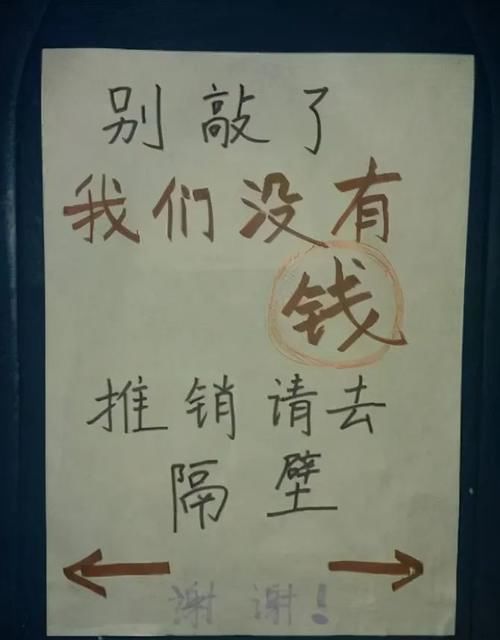 别敲了
我们没有
钱
推销请去
隔壁
谢谢!